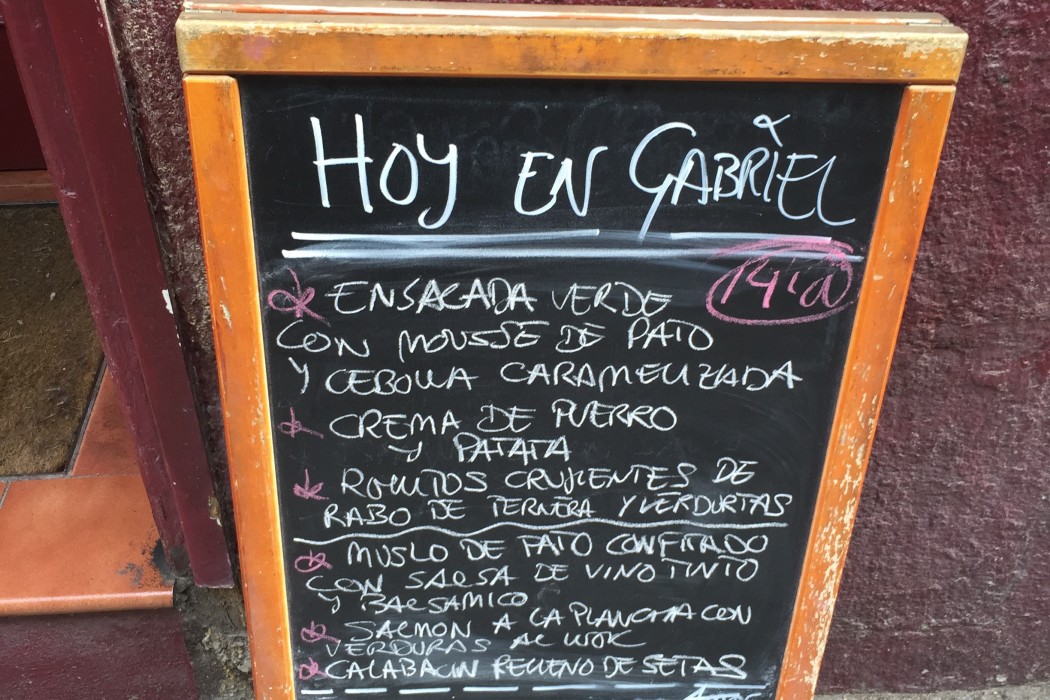 HOY EN GABRIEL
14'00
ENSALADA VERDE
CON MOUSSE DE PATO
Y CEBOLLA CARAMELIZADA
CREMA DE PUERRO
Y PATATA
ROLLITOS CRUJIENTES DE
RABO DE TERNERA Y VERDURITAS
MUSLO DE PATO CONFITADO
CON SALSA DE VINO TINTO
Y BALSAMICO
SALMON A LA PLANCHA CON
VERDURAS AL WOK
CALABACIN RELLENO DE SETAS